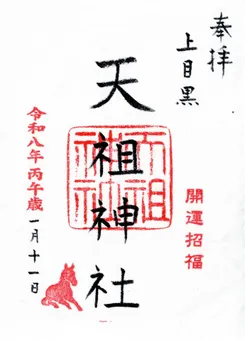 奉拝
上目黒
開運招福
天祖神社
天祖神社
令和八年丙午歳
一月十一日